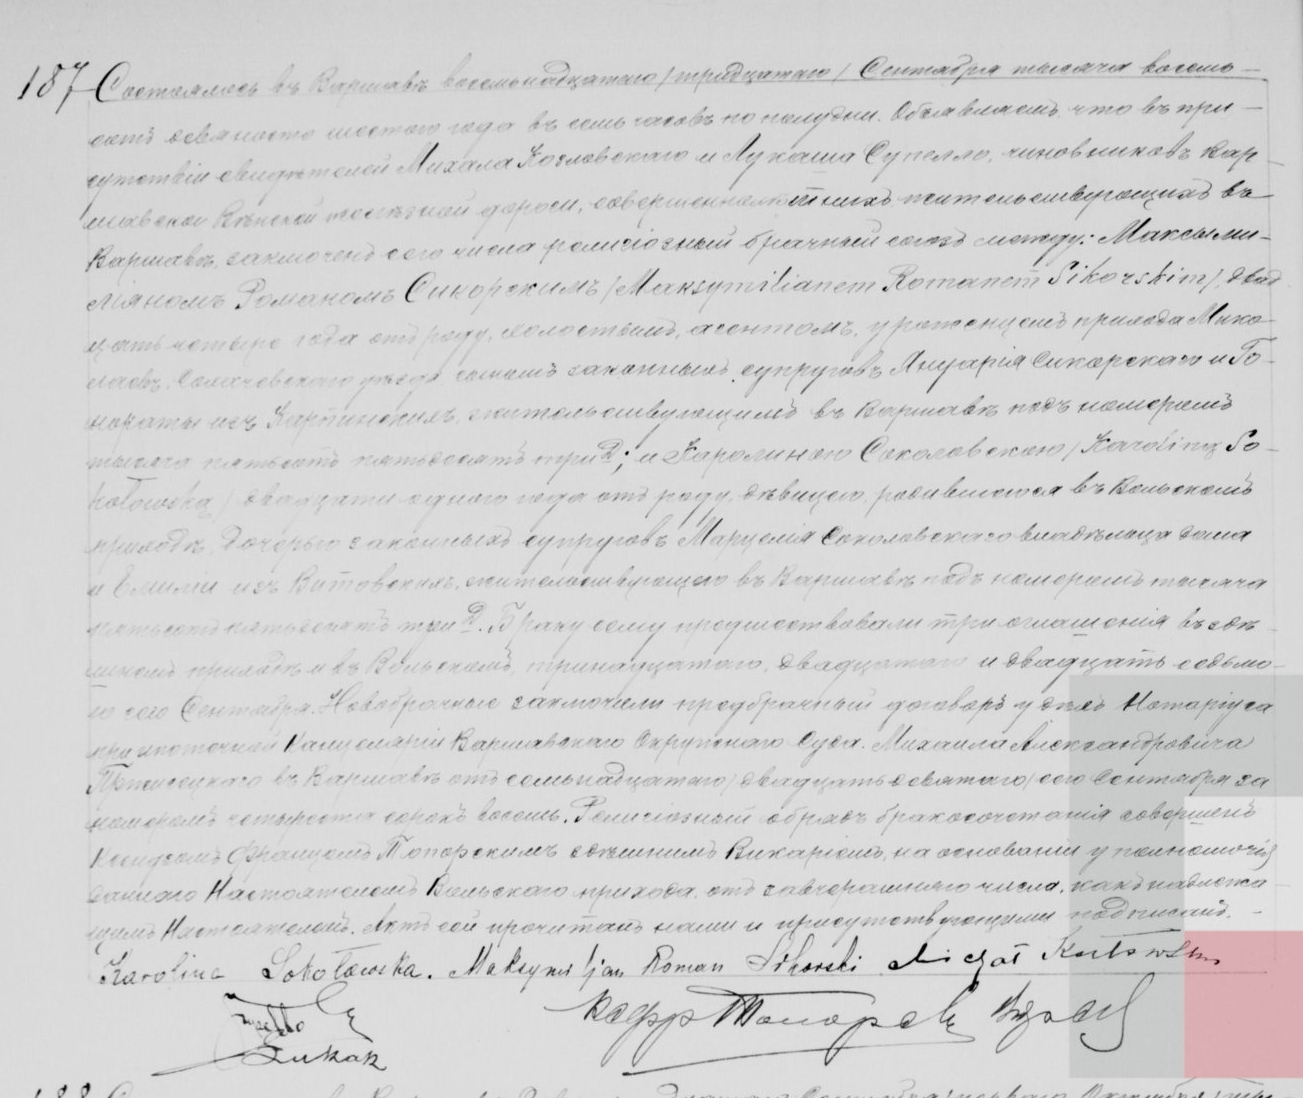 187 Состоялось въ Варшавѣ восемнадцатаго /тридцатаго/ Сентября тысяча восемь-
сотъ девяносто шестого года въ семь часовъ по полудни. Объявляемъ, что въ при-
сутствіи свидѣтелей Михала Козловскаго и Лукаша Супелло, чиновниковъ Вар-
шавско Вѣнской желѣзной дороги, совершеннолѣтнихъ жительствующихъ въ
Варшавѣ, заключенъ сего числа религіозный брачный союзъ между: Максыми-
ліяномъ Романомъ Сикорскимъ /Maksymilianem Romanem Sikorskim/, двад
цать четыре года отъ роду, холостымъ, агентомъ, уроженцемъ прихода Мико-
лаевъ, Сохачевскаго уѣзда сыномъ законныхъ супруговъ Януарія Сикорскаго и Го-
нораты изъ Карпинскихъ, жительствующимъ въ Варшавѣ подъ номеромъ
тысяча пятьсотъ пятьдесятъ три D; и Каролиною Соколовскою /Karoliną So-
kołowską/ двадцати одного года отъ роду, дѣвицею, родившеюся въ Вольскомъ
приходѣ, дочерью законныхъ супруговъ Марцелія Соколовскаго владѣльца дома
и Емиліи изъ Витовскихъ, жительствующею въ Варшавѣ подъ номеромъ тысяча
пятьсотъ пятьдесятъ три D. Браку сему предшествовали три оглашенія въ здѣ-
шнемъ приходѣ и въ Вольскомъ, тринадцатаго, двадцатаго и двадцать седьмо-
го сего Сентября. Новобрачные заключили предбрачный договоръ у дѣлъ Нотаріуса
при ипотечной Канцеляріи Варшавскаго Окружнаго Суда. Михаила Александровича
въ Варшавѣ отъ семнадцатаго /двадцать девятаго/ сего Сентября за
номеромъ четыреста сорокъ восемь. Религіозный обрядъ бракосочетанія совершенъ
Ксендзомъ Францомъ Топорскимъ здѣшнимъ Викаріемъ, на основаніи уполномочія
даннаго Настоятелемъ Вольскаго прихода, отъ завчерашняго числа, какъ надлежа-
щимъ Настоятелемъ. Актъ сей прочитанъ нами и присутствующими подписанъ. -
Karolina Sokołowska. Maksymiljan Roman Sikorski Michał Kozłowski
Supełło Топорск
Łukasz
188